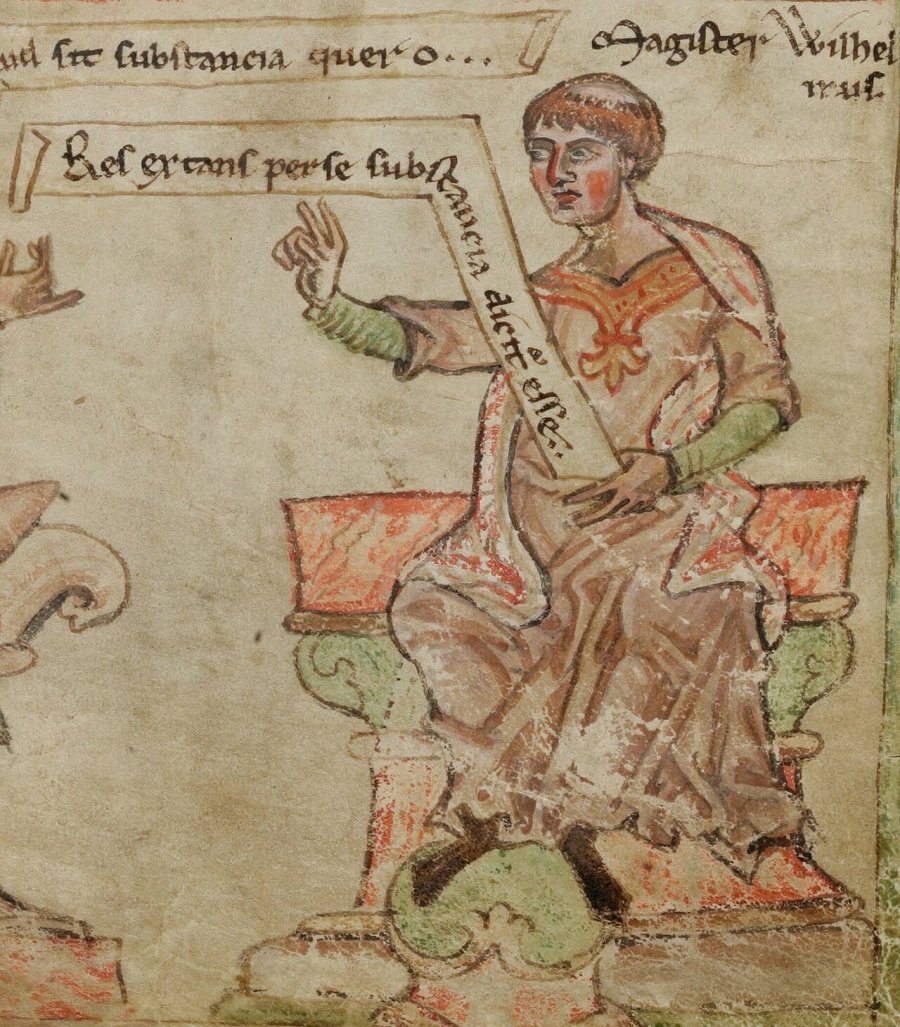 sit substancia quero...
Magister Wilhel
mus.
Res extans per se substancia dicitᷣ esse...